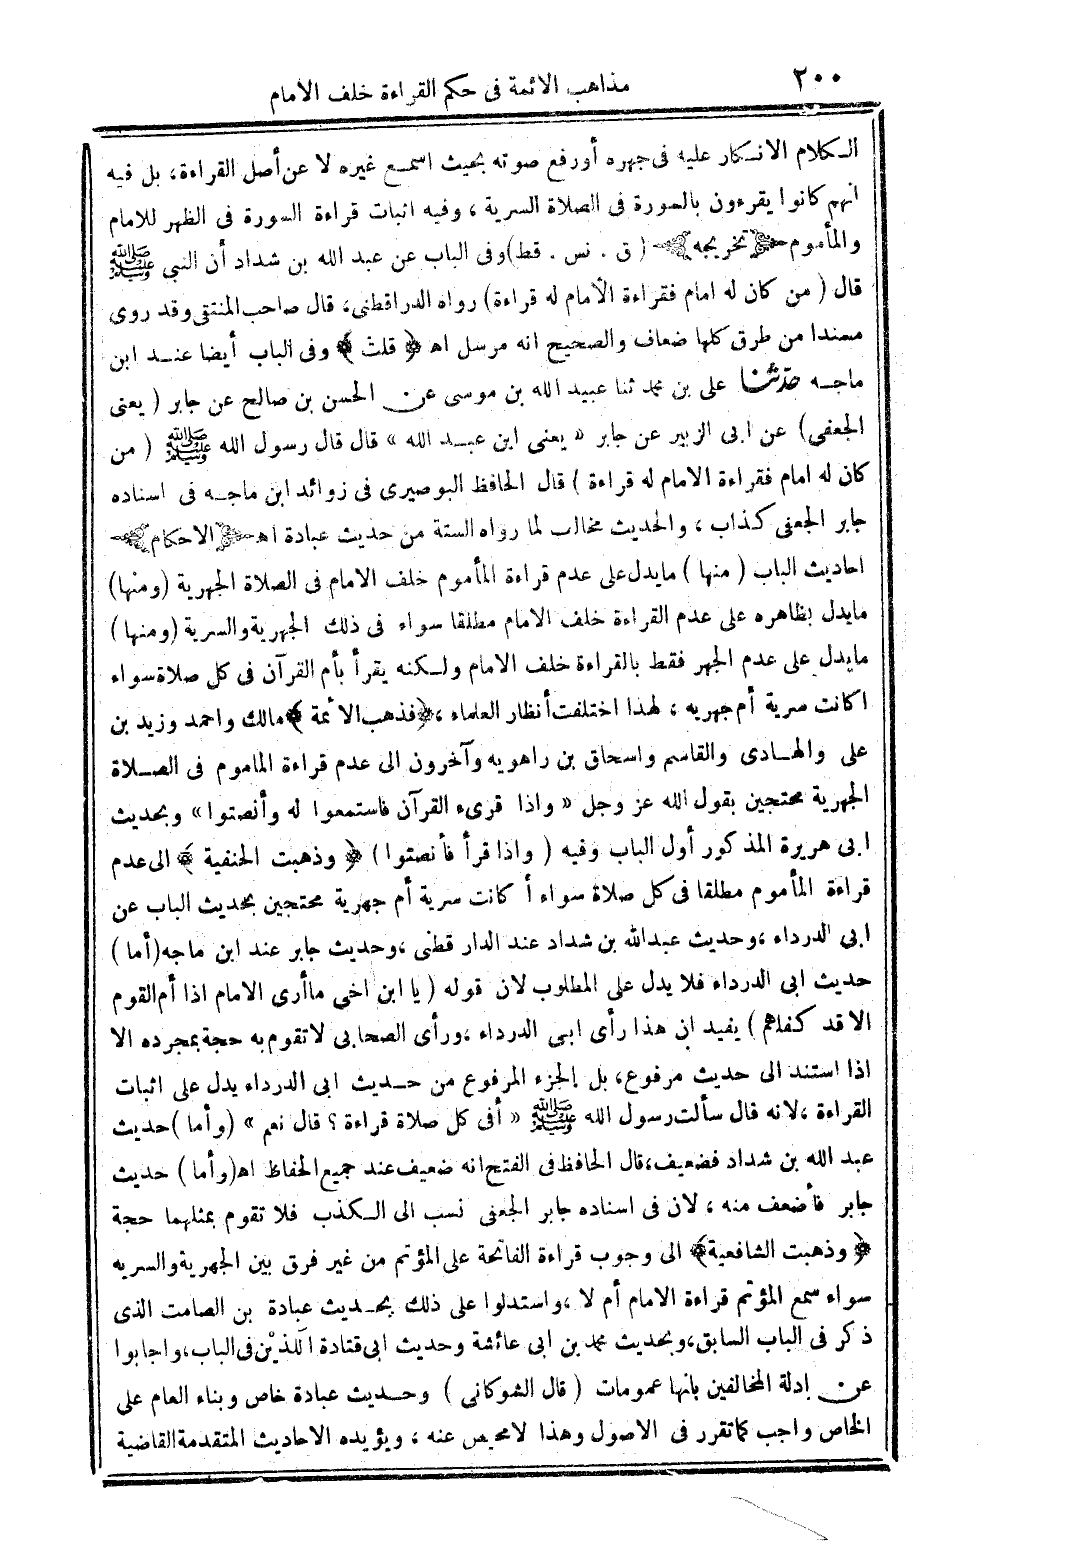 ٢٠٠
مذاهب الائمة فى حكم القراءة خلف الامام
الكلام الانكار عليه فى جهره أو رفع صوته بحيث اسمع غيره لا عن أصل القراءة، بل فيه
انهم كانوا يقرءون بالسورة فى الصلاة السرية ، وفيه اثبات قراءة السورة فى الظهر للامام
والمأموم ﴿تخريجه﴾ ( ق . نس . قط) وفى الباب عن عبد الله بن شداد أن النبي ﷺ
قال ( من كان له امام فقراءة الامام له قراءة) رواه الدراقطنى، قال صاحب المنتقى وقد روى
مسندا من طرق كلها ضعاف والصحيح انه مرسل اهـ ﴿ قلت ﴾ وفى الباب أيضا عند ابن
ماجه حدثنا على بن محمد ثنا عبيد الله بن موسى عن الحسن بن صالح عن جابر ( يعنى
الجعفى) عن ابى الزبير عن جابر « يعنى ابن عبد الله » قال قال رسول الله ﷺ ( من
كان له امام فقراءة الامام له قراءة ) قال الحافظ البوصيرى فى زوائد ابن ماجه فى اسناده
جابر الجعفى كذاب ، والحديث مخالف لما رواه الستة من حديث عبادة اهـ ﴿الاحكام﴾
احاديث الباب ( منها ) مايدل على عدم قراءة المأموم خلف الامام فى الصلاة الجهرية (ومنها)
مايدل بظاهره على عدم القراءة خلف الامام مطلقا سواء فى ذلك الجهرية والسرية (ومنها)
مايدل على عدم الجهر فقط بالقراءة خلف الامام ولكنه يقرأ بأم القرآن فى كل صلاة سواء
اكانت سرية أم جهريه ، لهذا اختلفت أنظار العلماء ، ﴿فذهب الائمة ﴾ مالك واحمد وزيد بن
على والهادى والقاسم واسحاق بن راهويه وآخرون الى عدم قراءة الماموم فى الصلاة
الجهرية محتجين بقول الله عز وجل « واذا قرىء القرآن فاستمعوا له وأنصتوا » وبحديث
ابى هريرة المذكور أول الباب وفيه ( واذا قرأ فأنصتوا ) ﴿ وذهبت الحنفية ﴾ الى عدم
قراءة المأموم مطلقا فى كل صلاة سواء أ كانت سرية أم جهرية محتجين بحديث الباب عن
ابى الدرداء ،وحديث عبدالله بن شداد عند الدار قطنى ،وحديث جابر عند ابن ماجه(أما )
حديث ابى الدرداء فلا يدل على المطلوب لان قوله ( يا ابن اخى ماأرى الامام اذا أم القوم
الا قد كفاهم ) يفيد ان هذا رأى ابى الدرداء ،ورأى الصحابى لاتقوم به حجة بمجرده الا
اذا استند الى حديث مرفوع، بل الجزء المرفوع من حديث ابى الدرداء يدل على اثبات
القراءة ،لانه قال سألت رسول الله ﷺ « أفى كل صلاة قراءة ؟ قال نعم » (وأما )حديث
عبد الله بن شداد فضعيف،قال الحافظ فى الفتح انه ضعيف عند جميع الحفاظ اهـ(وأما ) حديث
جابر فأضعف منه ، لان فى اسناده جابر الجعفى نسب الى الكذب فلا تقوم بمثلهما حجة
﴿ وذهبت الشافعية﴾ الى وجوب قراءة الفاتحة على المؤتم من غير فرق بين الجهرية والسريه
سواء سمع المؤتم قراءة الامام أم لا ،واستدلوا على ذلك بحديث عبادة بن الصامت الذى
ذكر فى الباب السابق،وبحديث محمد بن ابى عائشة وحديث ابى قتادة اللذيْن فى الباب،واجابوا
عن ادلة المخالفين بانها عمومات ( قال الشوكانى ) وحديث عبادة خاص وبناء العام على
الخاص واجب كما تقرر فى الاصول وهذا لامحيص عنه ، ويؤيده الاحاديث المتقدمة القاضية